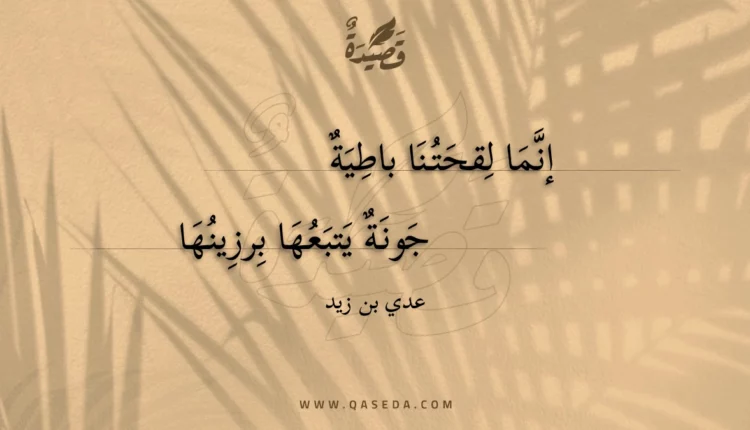 قَصِيْدَةٌ
إنَّمَا لِقحَتُنَا باطِيَةٌ
جَونَةٌ يَتبَعُهَا بِرزِينُهَا
عدي بن زيد
WWW.QASEDA.COM